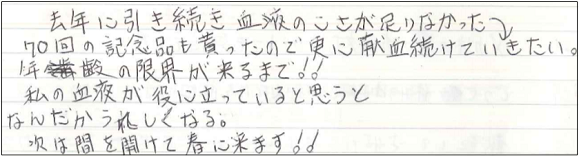 去年に引き続き血液のこさが足りなかった
70回の記念品も貰ったので更に献血続けていきたい。
年齢の限界が来るまで!!
私の血液が役に立っていると思うと
なんだかうれしくなる。
次は間を開けて春に来ます!!